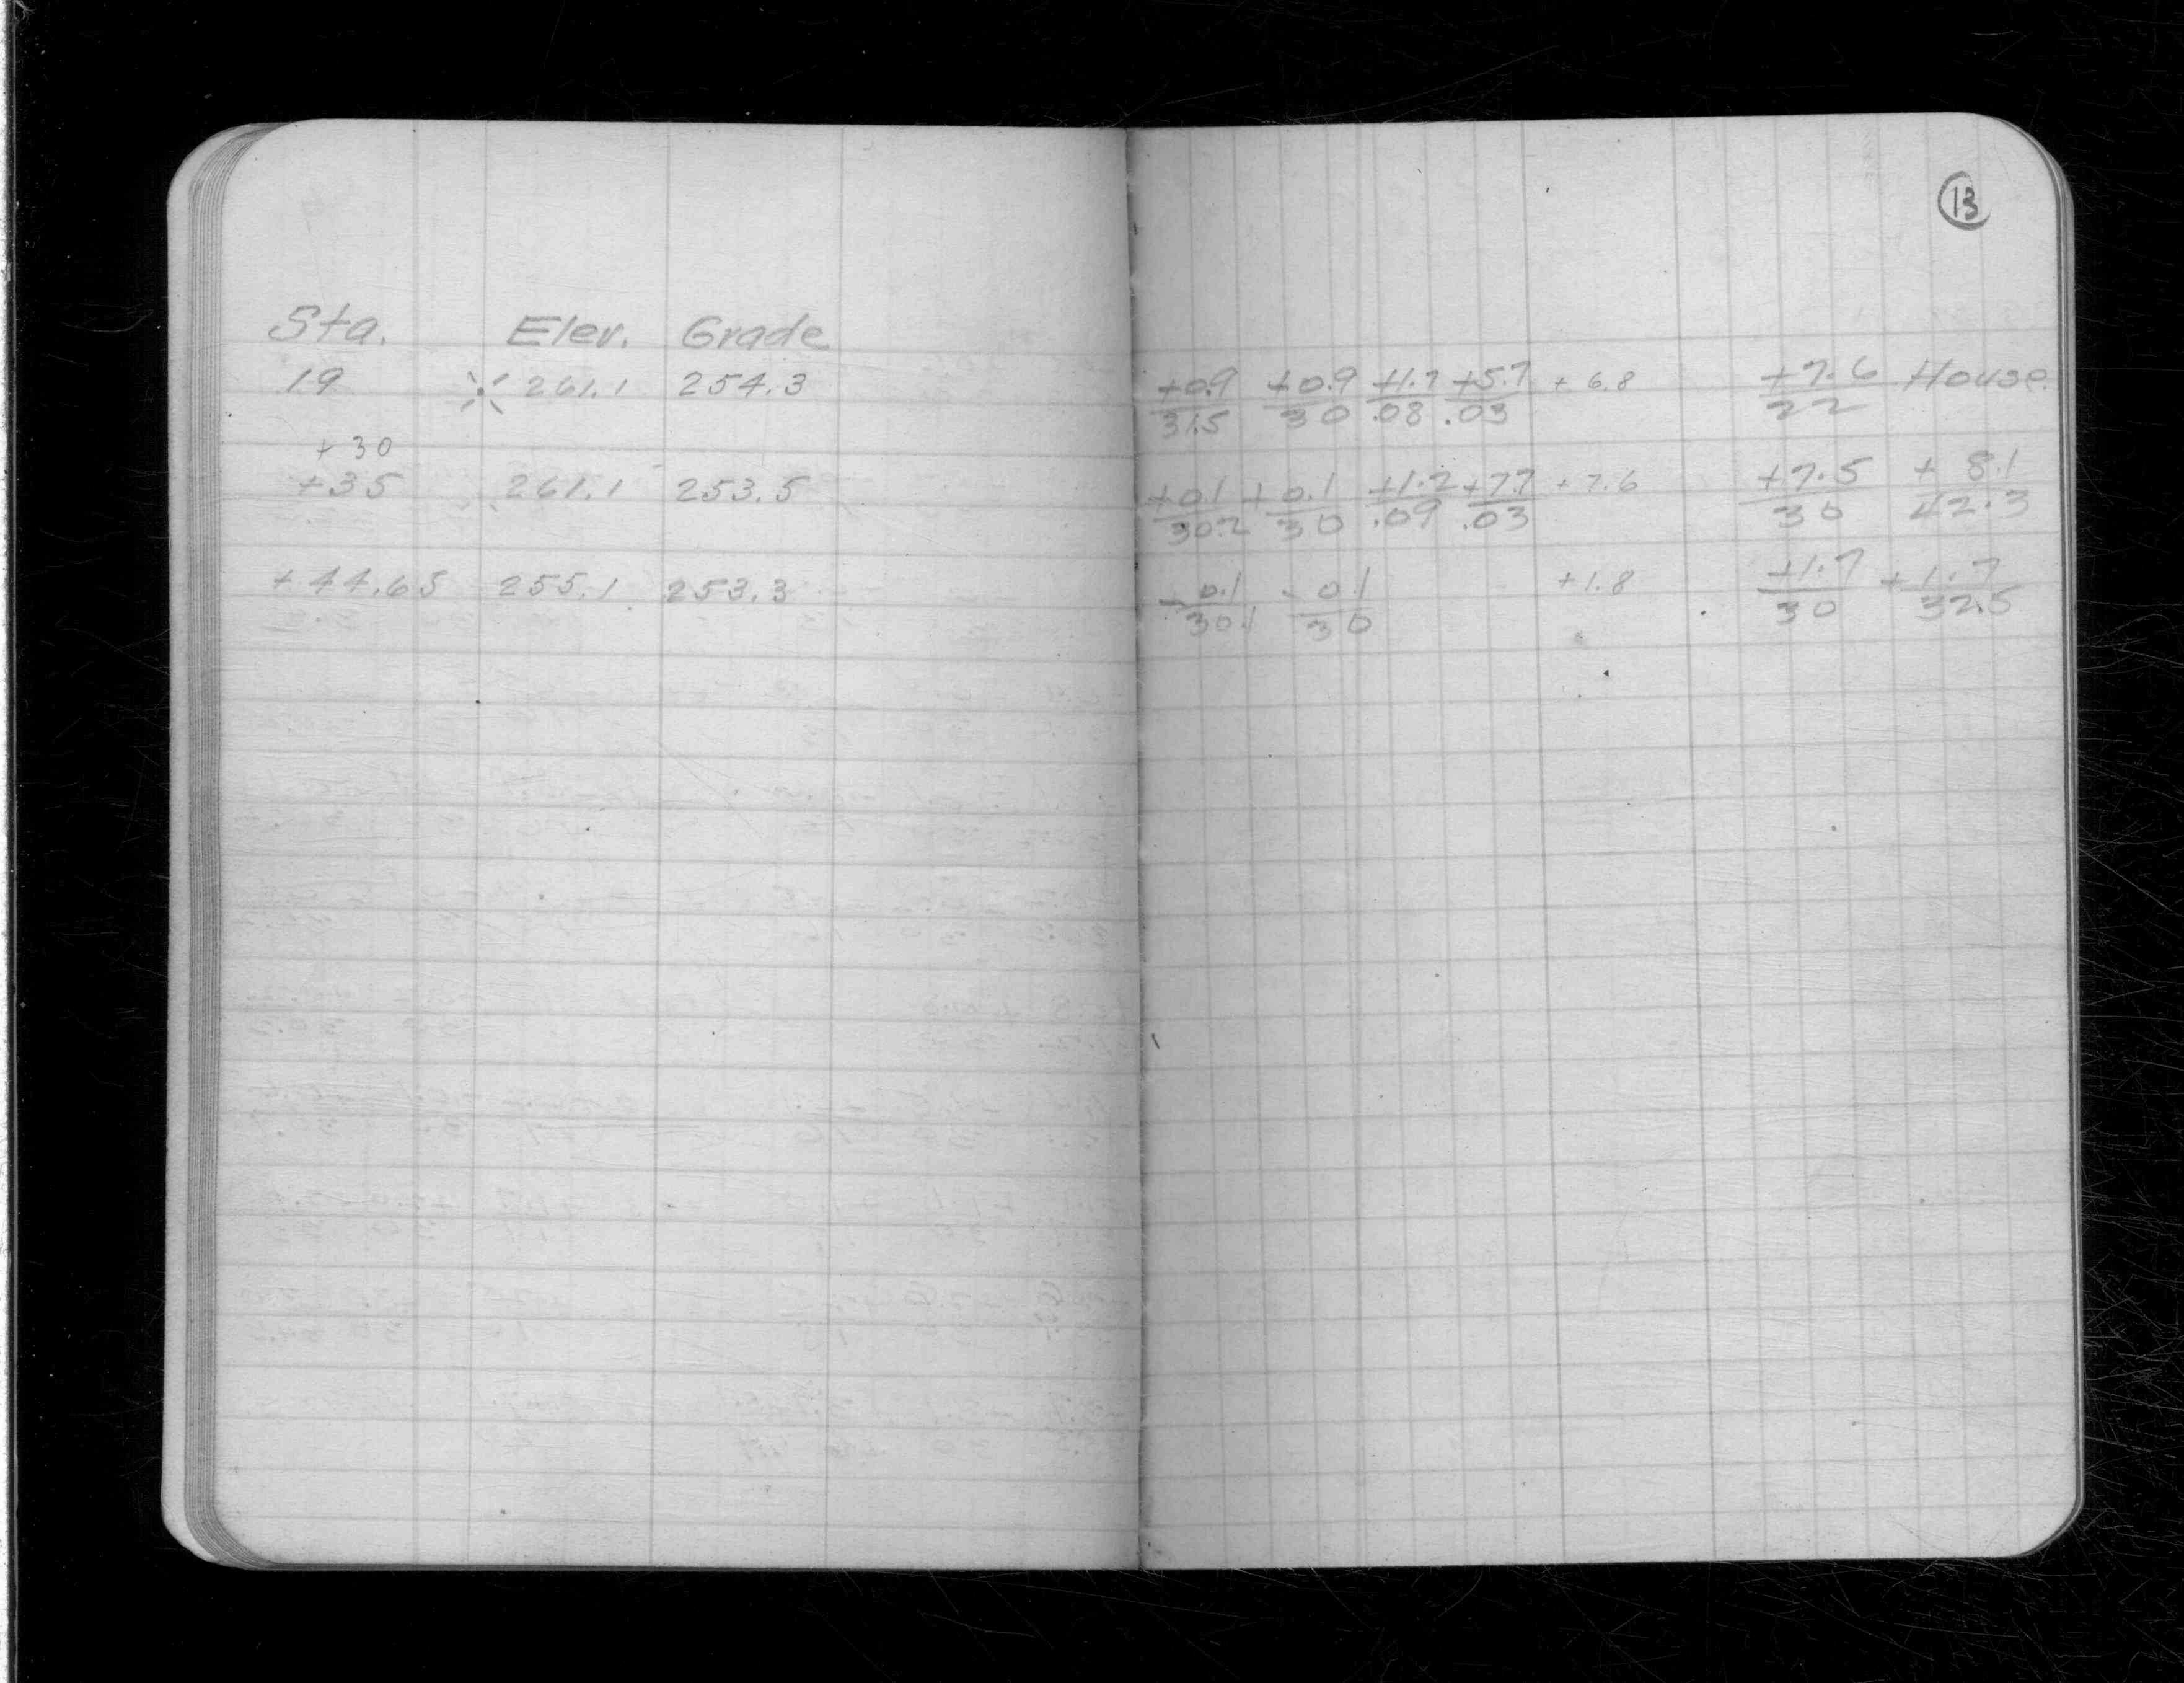 13
Sta. Elev. Grade
19 261.1 254.3 +0.9/31.5 +0.9/30 +1.7/.08 +5.7/.03 +6.8 +7.6/22 House
+30
+35 261.1 253.5 +0.1/30.2 +0.1/30 +1.2/.09 +7.7/.03 +7.6 +7.5/30 +8.1/42.3
+44.65 255.1 253.3 -0.1/30.1 -0.1/30 +1.8 +1.7/30 +1.7/32.5